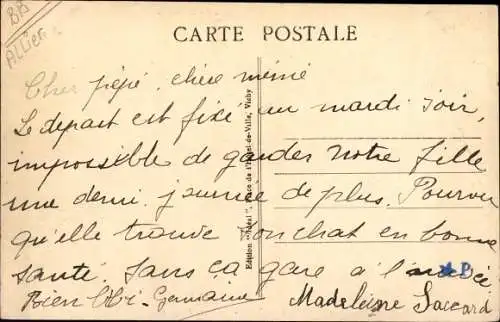 BB
Allier
CARTE POSTALE
Cher pépé, chère mémé
Le depart est fixé au mardi soir,
impossible de garder notre fille
une demi journée de plus. Pourvu
qu'elle trouve son chat en bonne
santé. Sans ça gare à l'
Bien Germaine Madeleine
Edition "Idéal", Place de l'Hôtel-de-Ville, Vichy